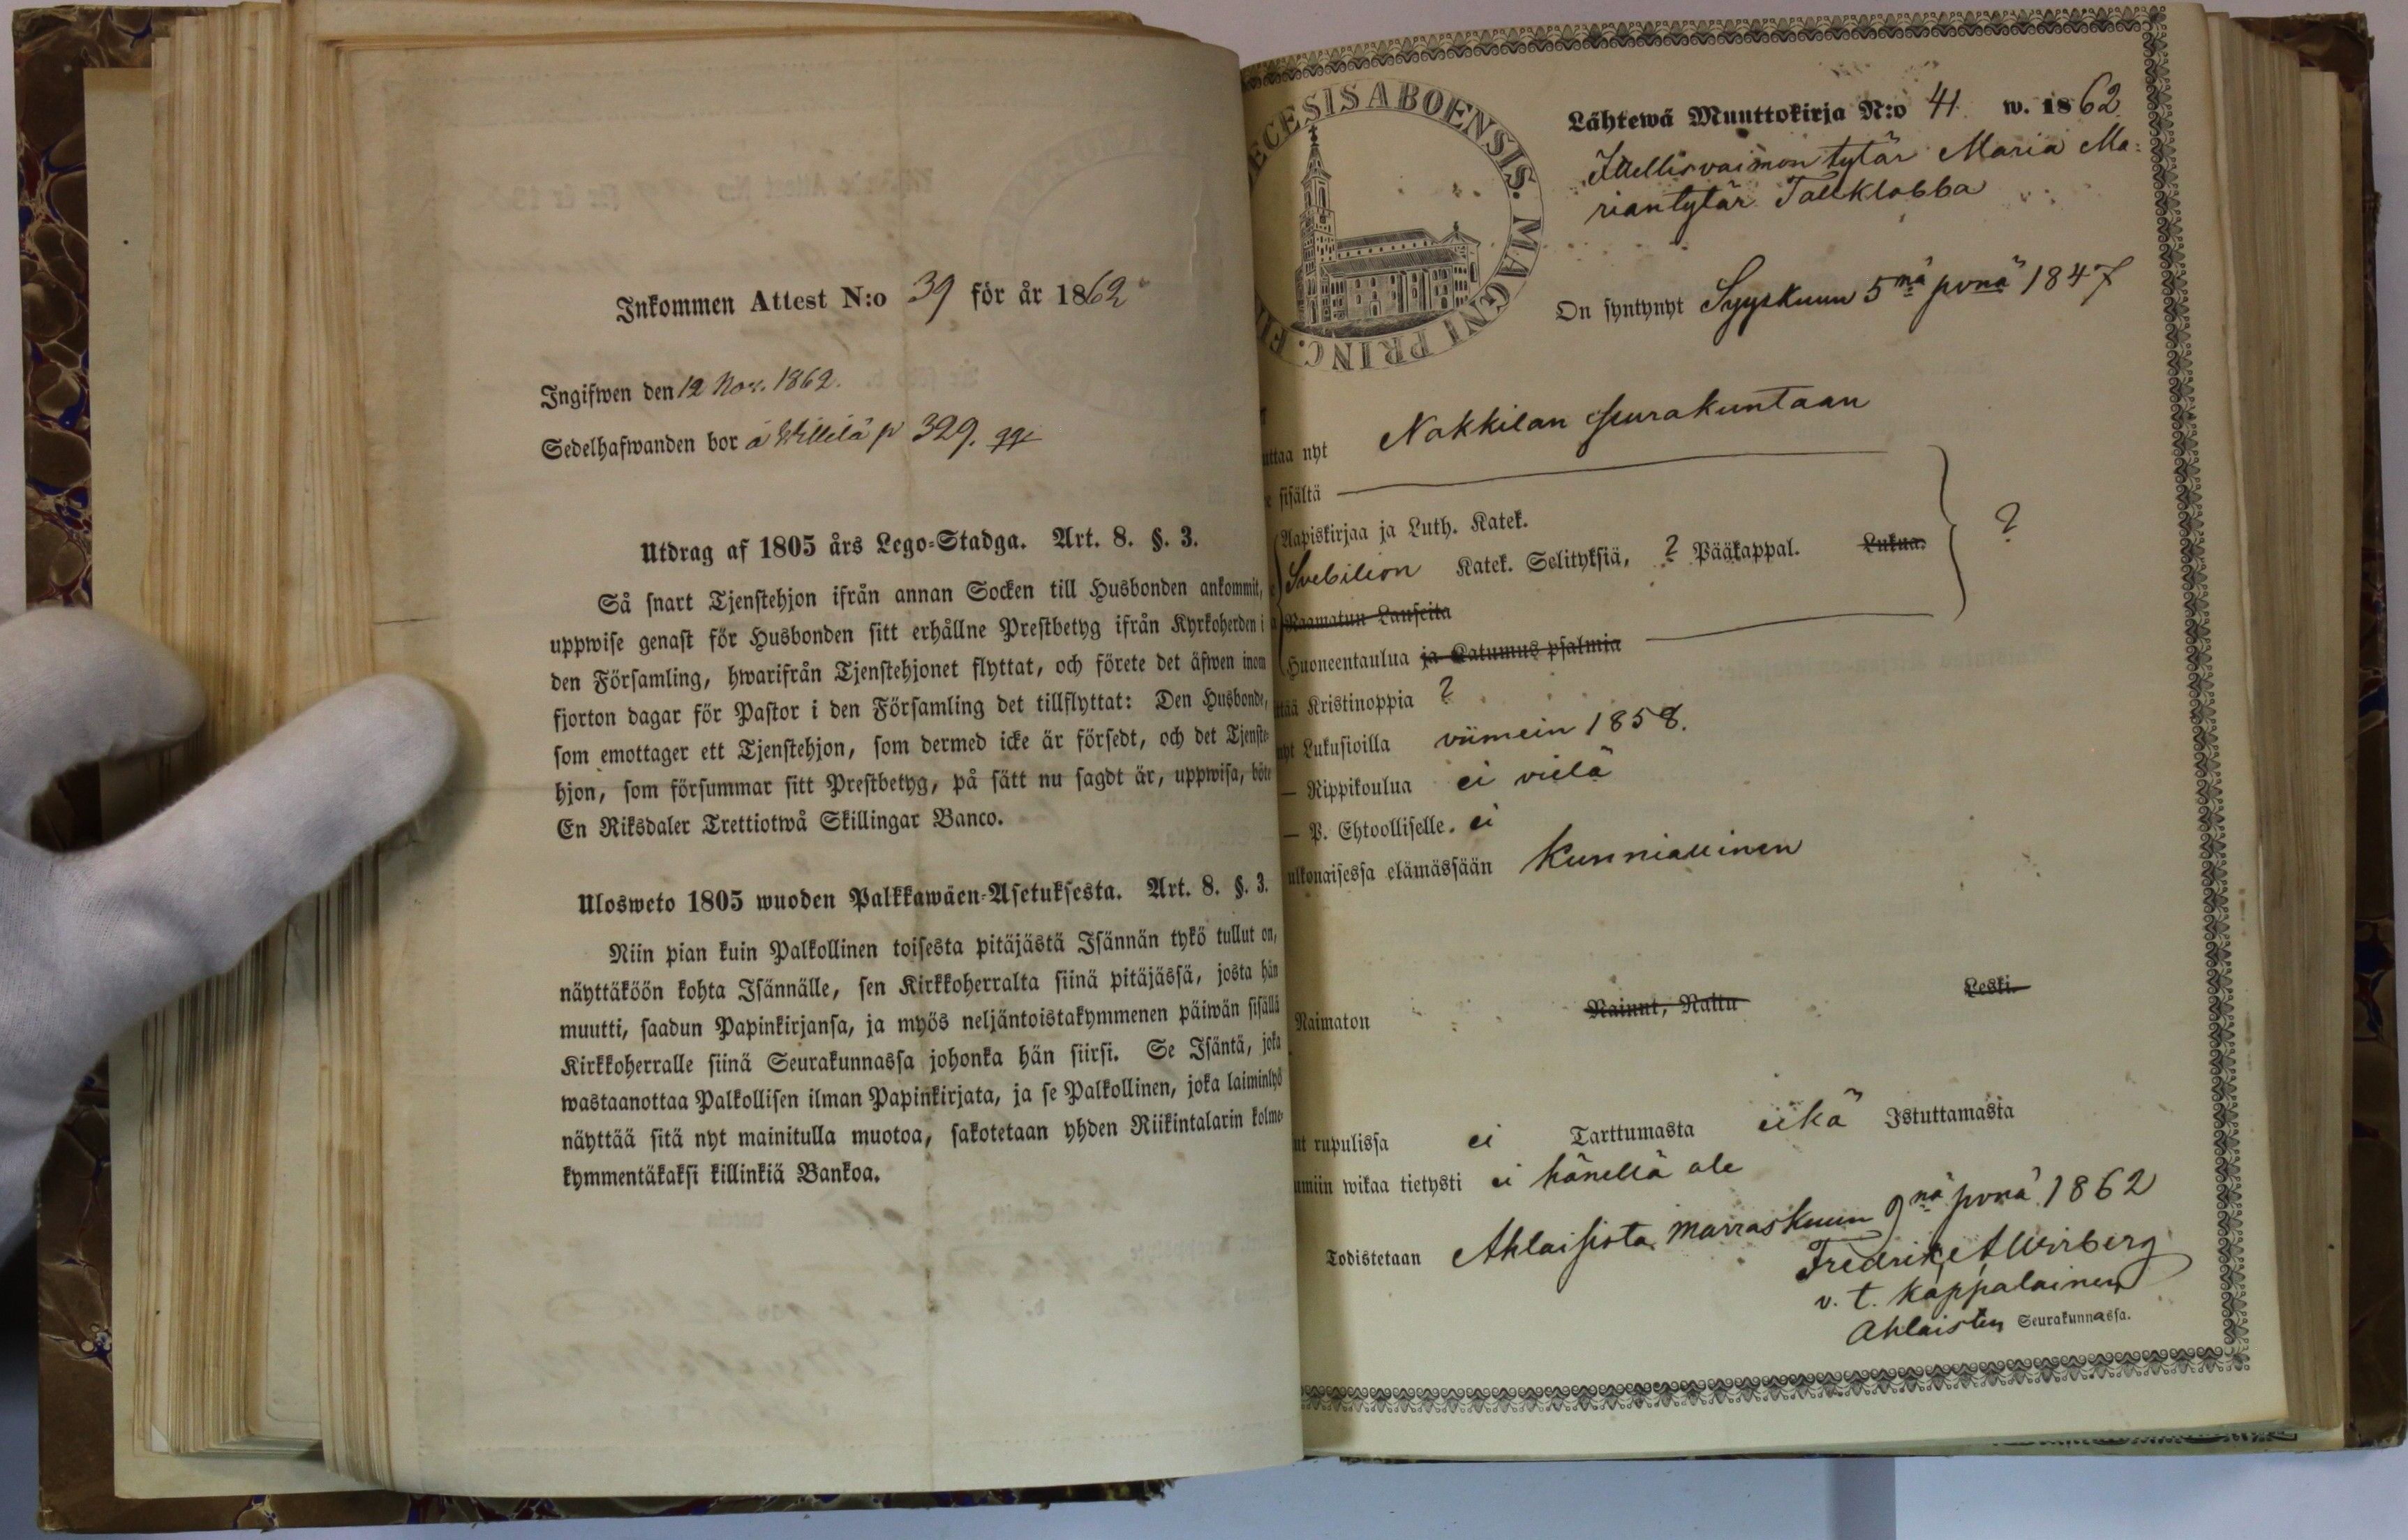 Inkommen Attest N:o 39 för år 1862
Ingifwen den 12 Nov. 1862.
Sedelhafwanden bor å Willilä p 329.
Utdrag af 1805 års Lego-Stadga. Art. 8. §. 3.
Så snart Tjenstehjon ifrån annan Socken till Husbonden ankommit,
uppwise genast för Husbonden sitt erhållne Prestbetyg ifrån Kyrkoherden i
den Församling, hwarifrån Tjenstehjonet flyttat, och förete det äfwen inom
fjorton dagar för Pastor i den Församling det tillflyttat: Den Husbonde,
som emottager ett Tjenstehjon, som dermed icke är försedt, och det Tjenste-
hjon, som försummar sitt Prestbetyg, på sätt nu sagdt är, uppwisa, böte
En Riksdaler Trettiotwå Skillingar Banco.
Ulosweto 1805 wuoden Palkkawäen-Asetuksesta. Art. 8. §. 3.
Niin pian kuin Palkollinen toisesta pitäjästä Isännän tykö tullut on,
näyttäköön kohta Isännälle, sen Kirkkoherralta siinä pitäjässä, josta hän
muutti, saadun Papinkirjansa, ja myös neljäntoistakymmenen päiwän sisällä
Kirkkoherralle siinä Seurakunnassa johonka hän siirsi. Se Isäntä, joka
wastaanottaa Palkollisen ilman Papinkirjata, ja se Palkollinen, joka laiminlyö
näyttää sitä nyt mainitulla muotoa, sakotetaan yhden Riikintalarin kolme-
kymmentäkaksi killinkiä Bankoa.
ECESIS ABOENSIS. MAGNI PRINC. FI
Lähtewä Muuttokirja N:o 41 w. 1862
Itsellisvaimon tytär Maria Ma-
riantytär Tallklobba
On syntynyt Syyskuun 5nä pvnä 1847
uttaa nyt Nakkilan Seurakuntaan
e sisältä
Aapiskirjaa ja Luth. Katek.
Svebilion Katek. Selityksiä, ? Pääkappal. Lukua. ?
Raamatun Lauseita
Huoneentaulua ja Katumus psalmia
ttää Kristinoppia ?
nyt Lukusioilla viimein 1858.
— Rippikoulua ei vielä
— P. Ehtoolliselle. ei
ulkonaisessa elämässään Kunniallinen
Naimaton Nainut, Naitu Leski.
ut rupulissa ei Tarttumasta eikä Istuttamasta
umiin wikaa tietysti ei hänellä ole
Todistetaan Ahlaisista Marraskuun 9nä pvnä 1862
Fredrik A Wirberg
v. t. kappalainen
Ahlaisten Seurakunnassa.